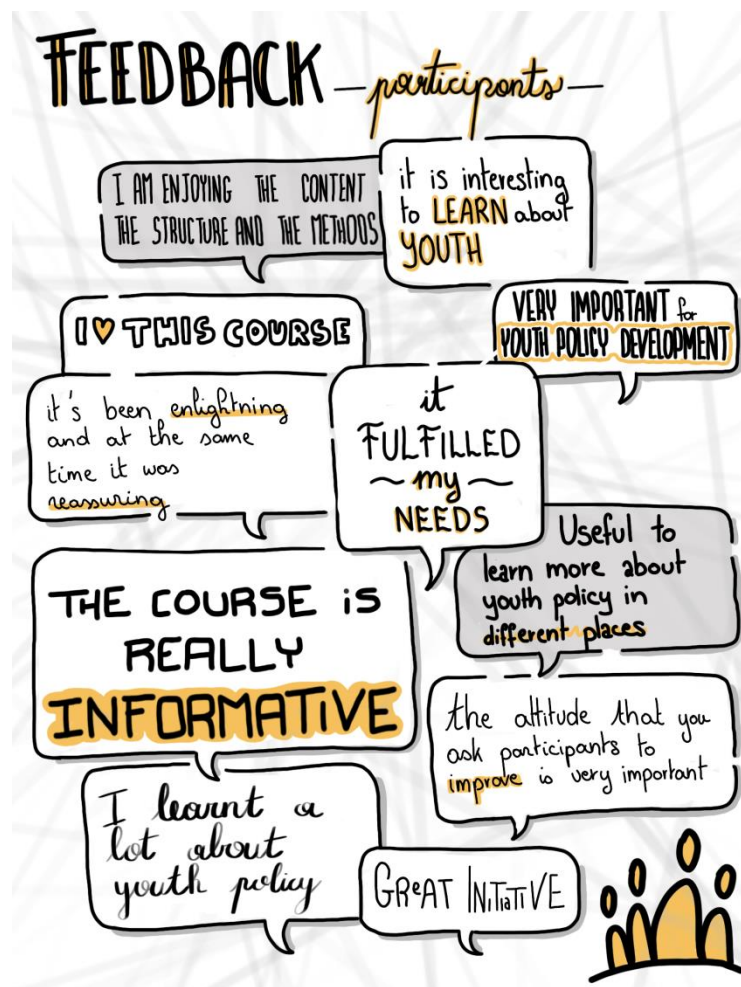 FEEDBACK -participants-
I AM ENJOYING THE CONTENT
THE STRUCTURE AND THE METHODS
it is interesting
to LEARN about
YOUTH
I ♥ THIS COURSE
VERY IMPORTANT for
YOUTH POLICY DEVELOPMENT
it's been enlightning
and at the same
time it was
reassuring
it
FULFILLED
~ my ~
NEEDS
Useful to
learn more about
youth policy in
different places
THE COURSE iS
REALLY
INFORMATiVE
the attitude that you
ask participants to
improve is very important
I learnt a
lot about
youth policy
GReAT INiTiaTiVE